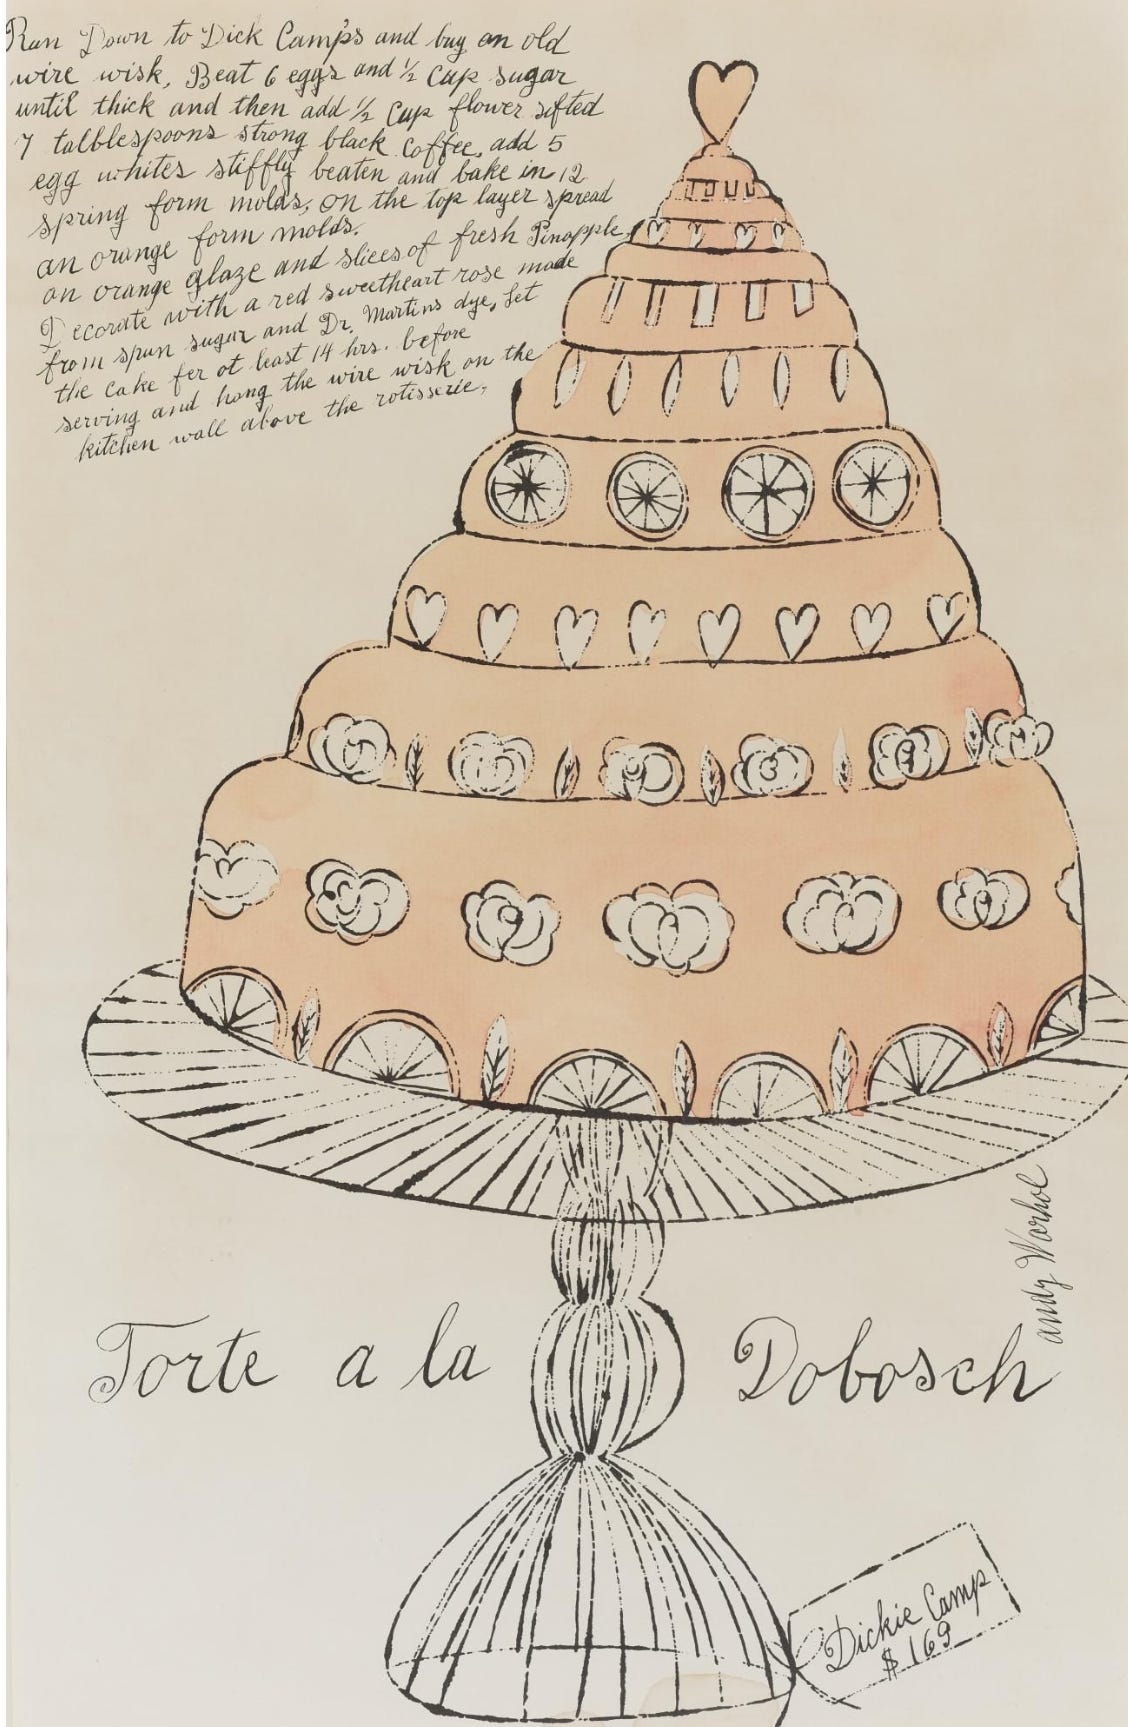 Run Down to Dick Camp's and buy an old
wire wisk, Beat 6 eggs and ½ Cup sugar
until thick and then add ½ Cup flower sifted
7 talblespoons strong black coffee, add 5
egg whites stiffly beaten and bake in 12
spring form molds, on the top layer spread
an orange form molds.
an orange glaze and slices of fresh Pinapple,
Decorate with a red sweetheart rose made
from spun sugar and Dr. Martins dye, Let
the cake fer at least 14 hrs. before
serving and hang the wire wisk on the
kitchen wall above the rotisserie,
andy Warhol
Torte a la Dobosch
Dickie Camp
$ 169